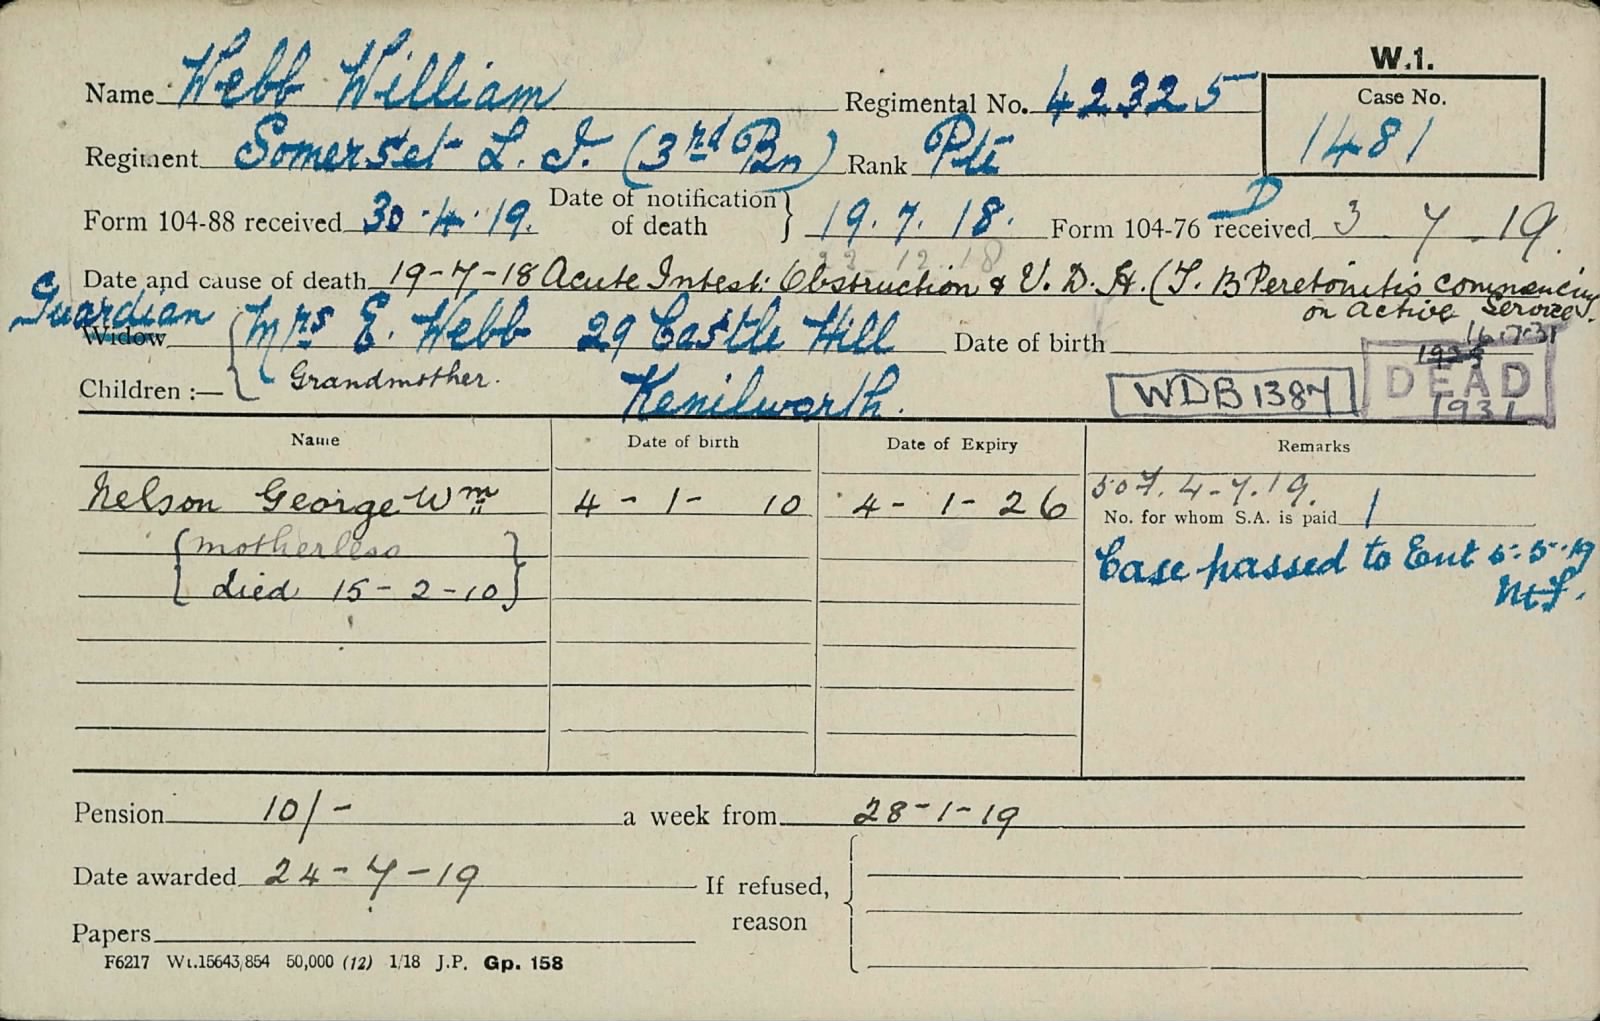 W.1.
Name Webb William Regimental No. 42325 Case No.
1481
Regiment Somerset L. I. (3rd Bn) Rank Pte
Form 104-88 received 30.4.19. Date of notification of death } 19.7.18. Form 104-76 D received 3 7 19.
22 12 18
Date and cause of death 19-7-18 Acute Intest: Obstruction & V. D. H. (T. B Peretonitis commencing
on Active Service.
Guardian
Widow Mrs E. Webb 29 Castle Hill Date of birth
16.7.31
Children :— Grandmother. Kenilworth. WDB1387 DEAD
1931
Name Date of birth Date of Expiry Remarks
Nelson George Wm 4-1-10 4-1-26 4.7.19.
No. for whom S.A. is paid 1
{motherless
died 15-2-10} Case passed to Ent 5.5.19
Pension 10/- a week from 28-1-19
Date awarded 24-7-19 If refused,
reason
Papers
F6217 Wt.15643/854 50,000 (12) 1/18 J.P. Gp. 158